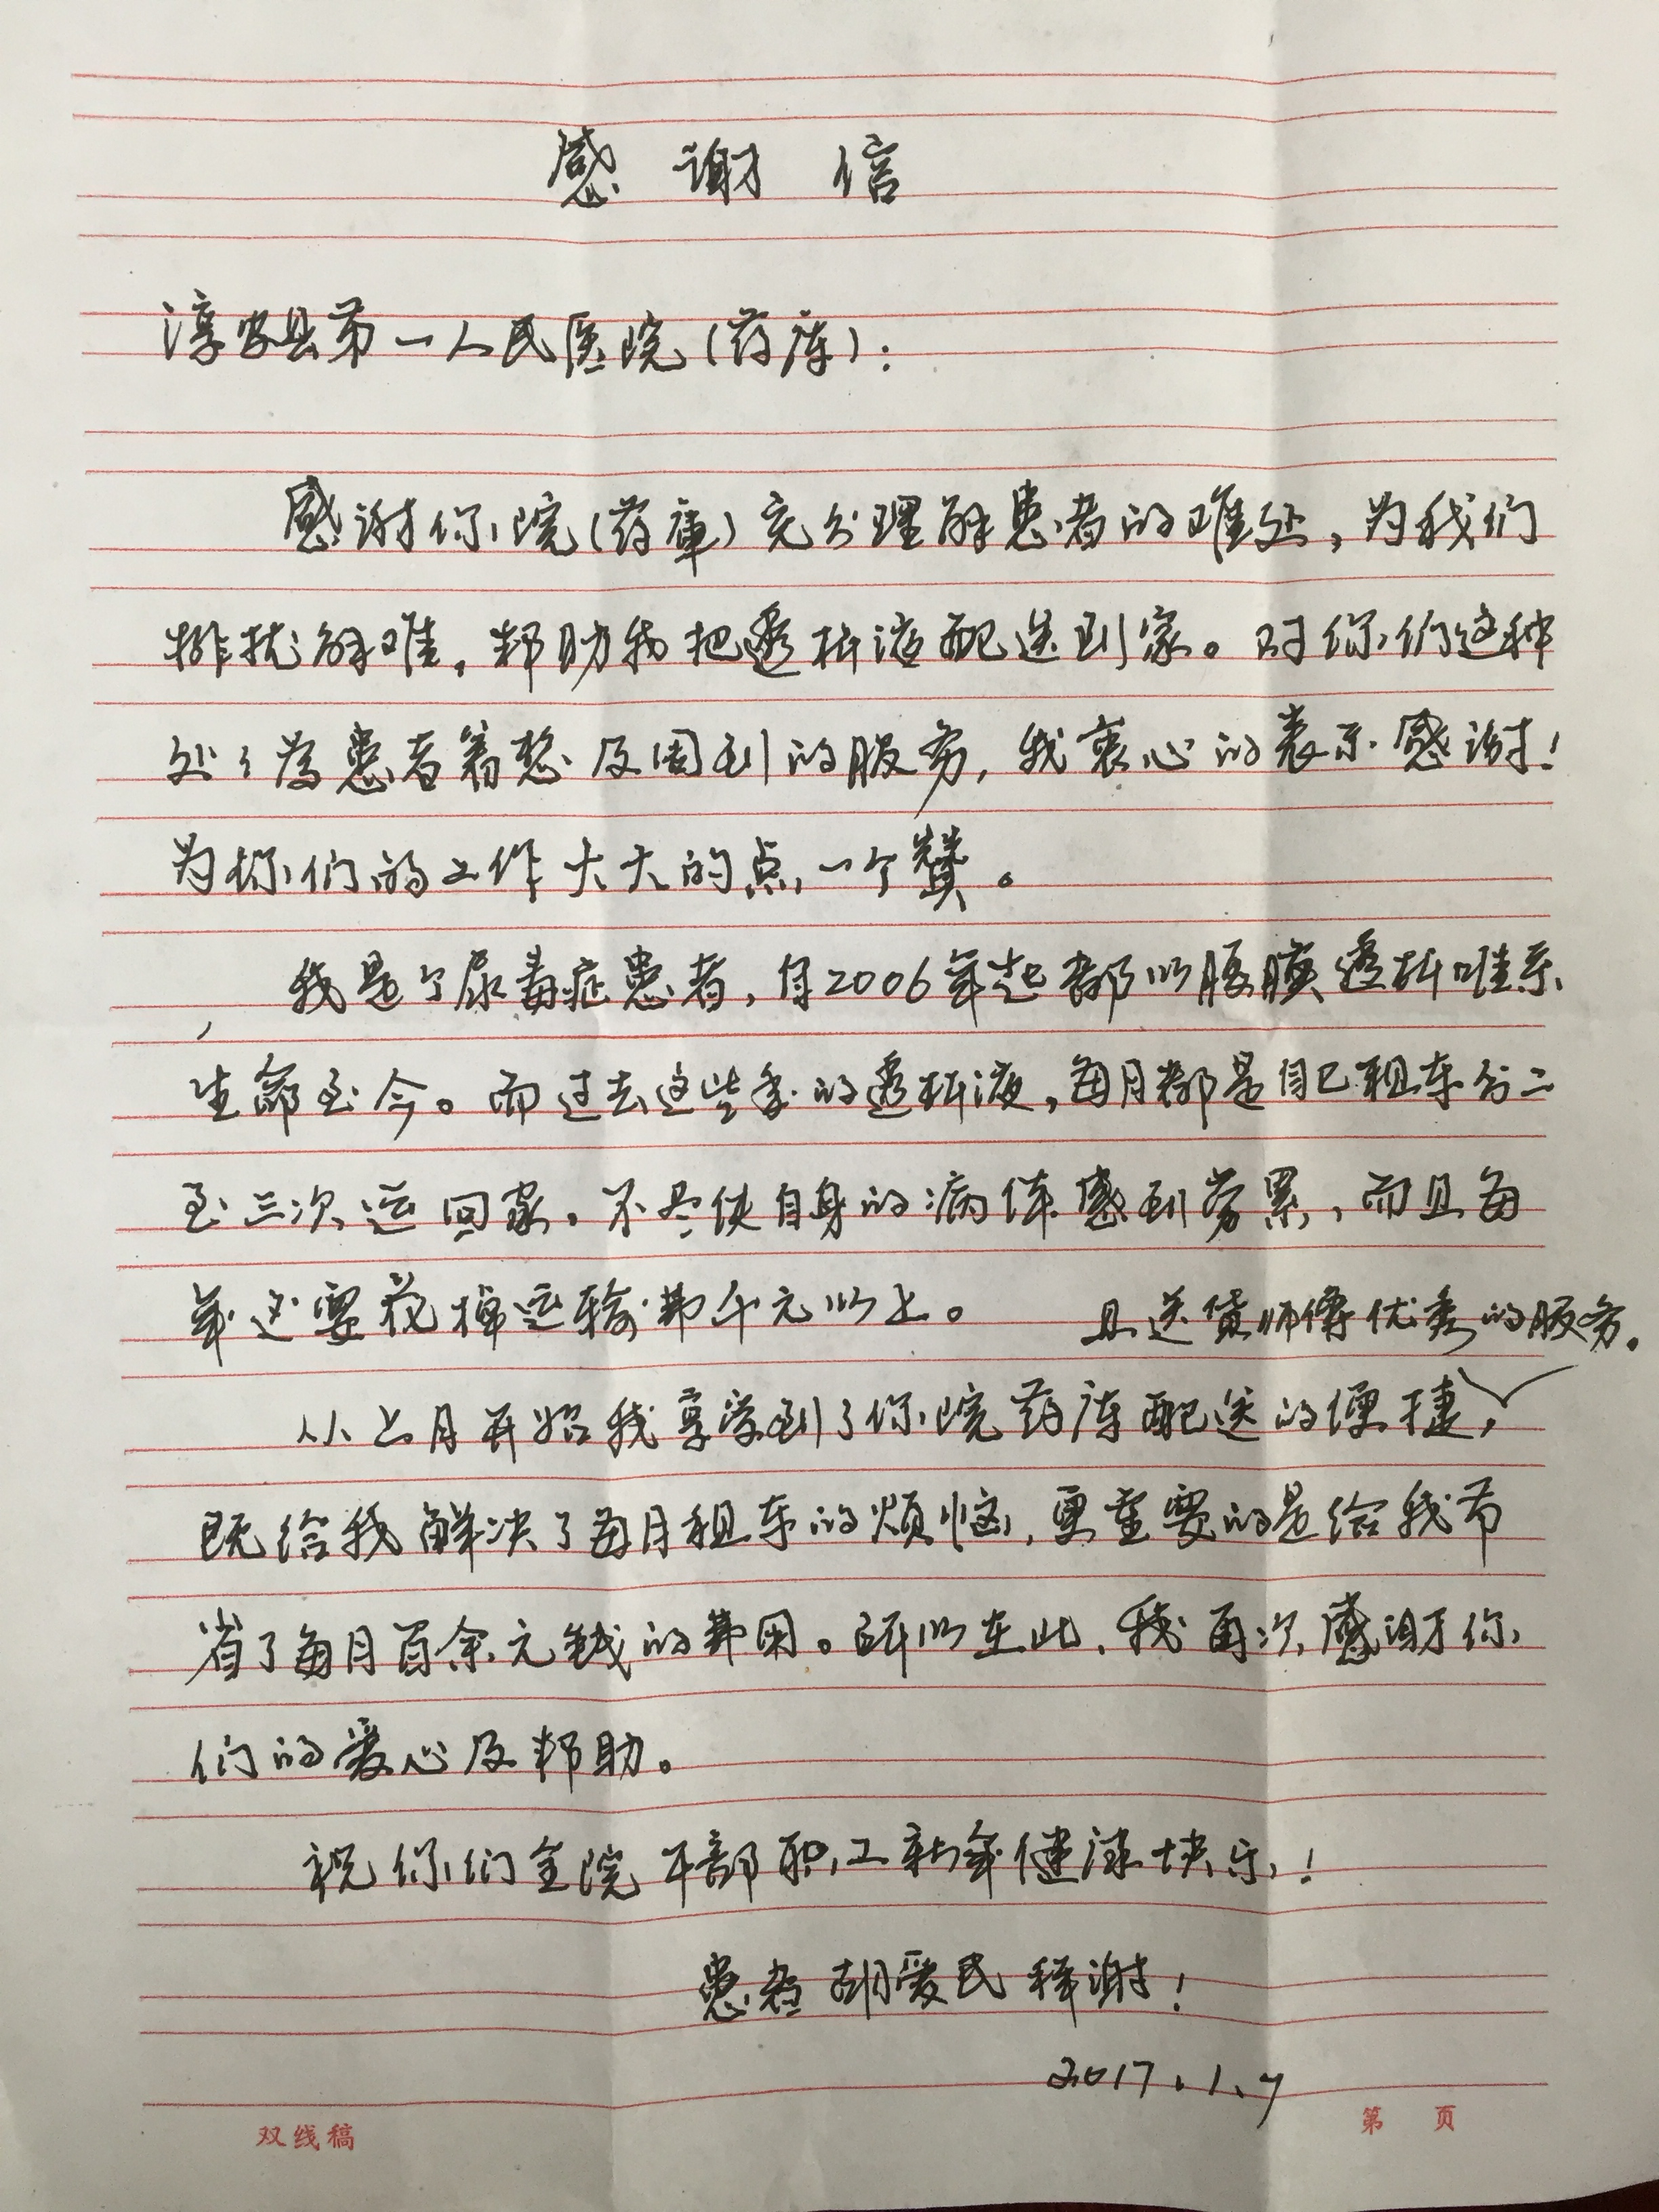 感谢信
淳安县第一人民医院(药库):
感谢你院(药庫)充分理解患者的难处,为我们
排扰解难,帮助我把透析液配送到家。对你们这种
处处为患者着想及周到的服务,我衷心的表示感谢!
为你们的工作大大的点一个赞。
我是个尿毒症患者,自2006年起都以腹膜透析唯系
生命至今。而过去这些年的透析液,每月都是自己租车分二
至三次运回家,不尽使自身的病体感到劳累,而且每
年还要花掉运输费千元以上。
且送货师傅优秀的服务。
从上月开始我享受到了你院药库配送的便捷,
既给我解决了每月租车的烦恼,更重要的是给我节
省了每月百余元钱的费用。所以在此,我再次感谢你
们的爱心及帮助。
祝你们全院干部职工新年健康快乐!
患者 胡爱民 稀谢!
2017.1.7
双线稿
第 页